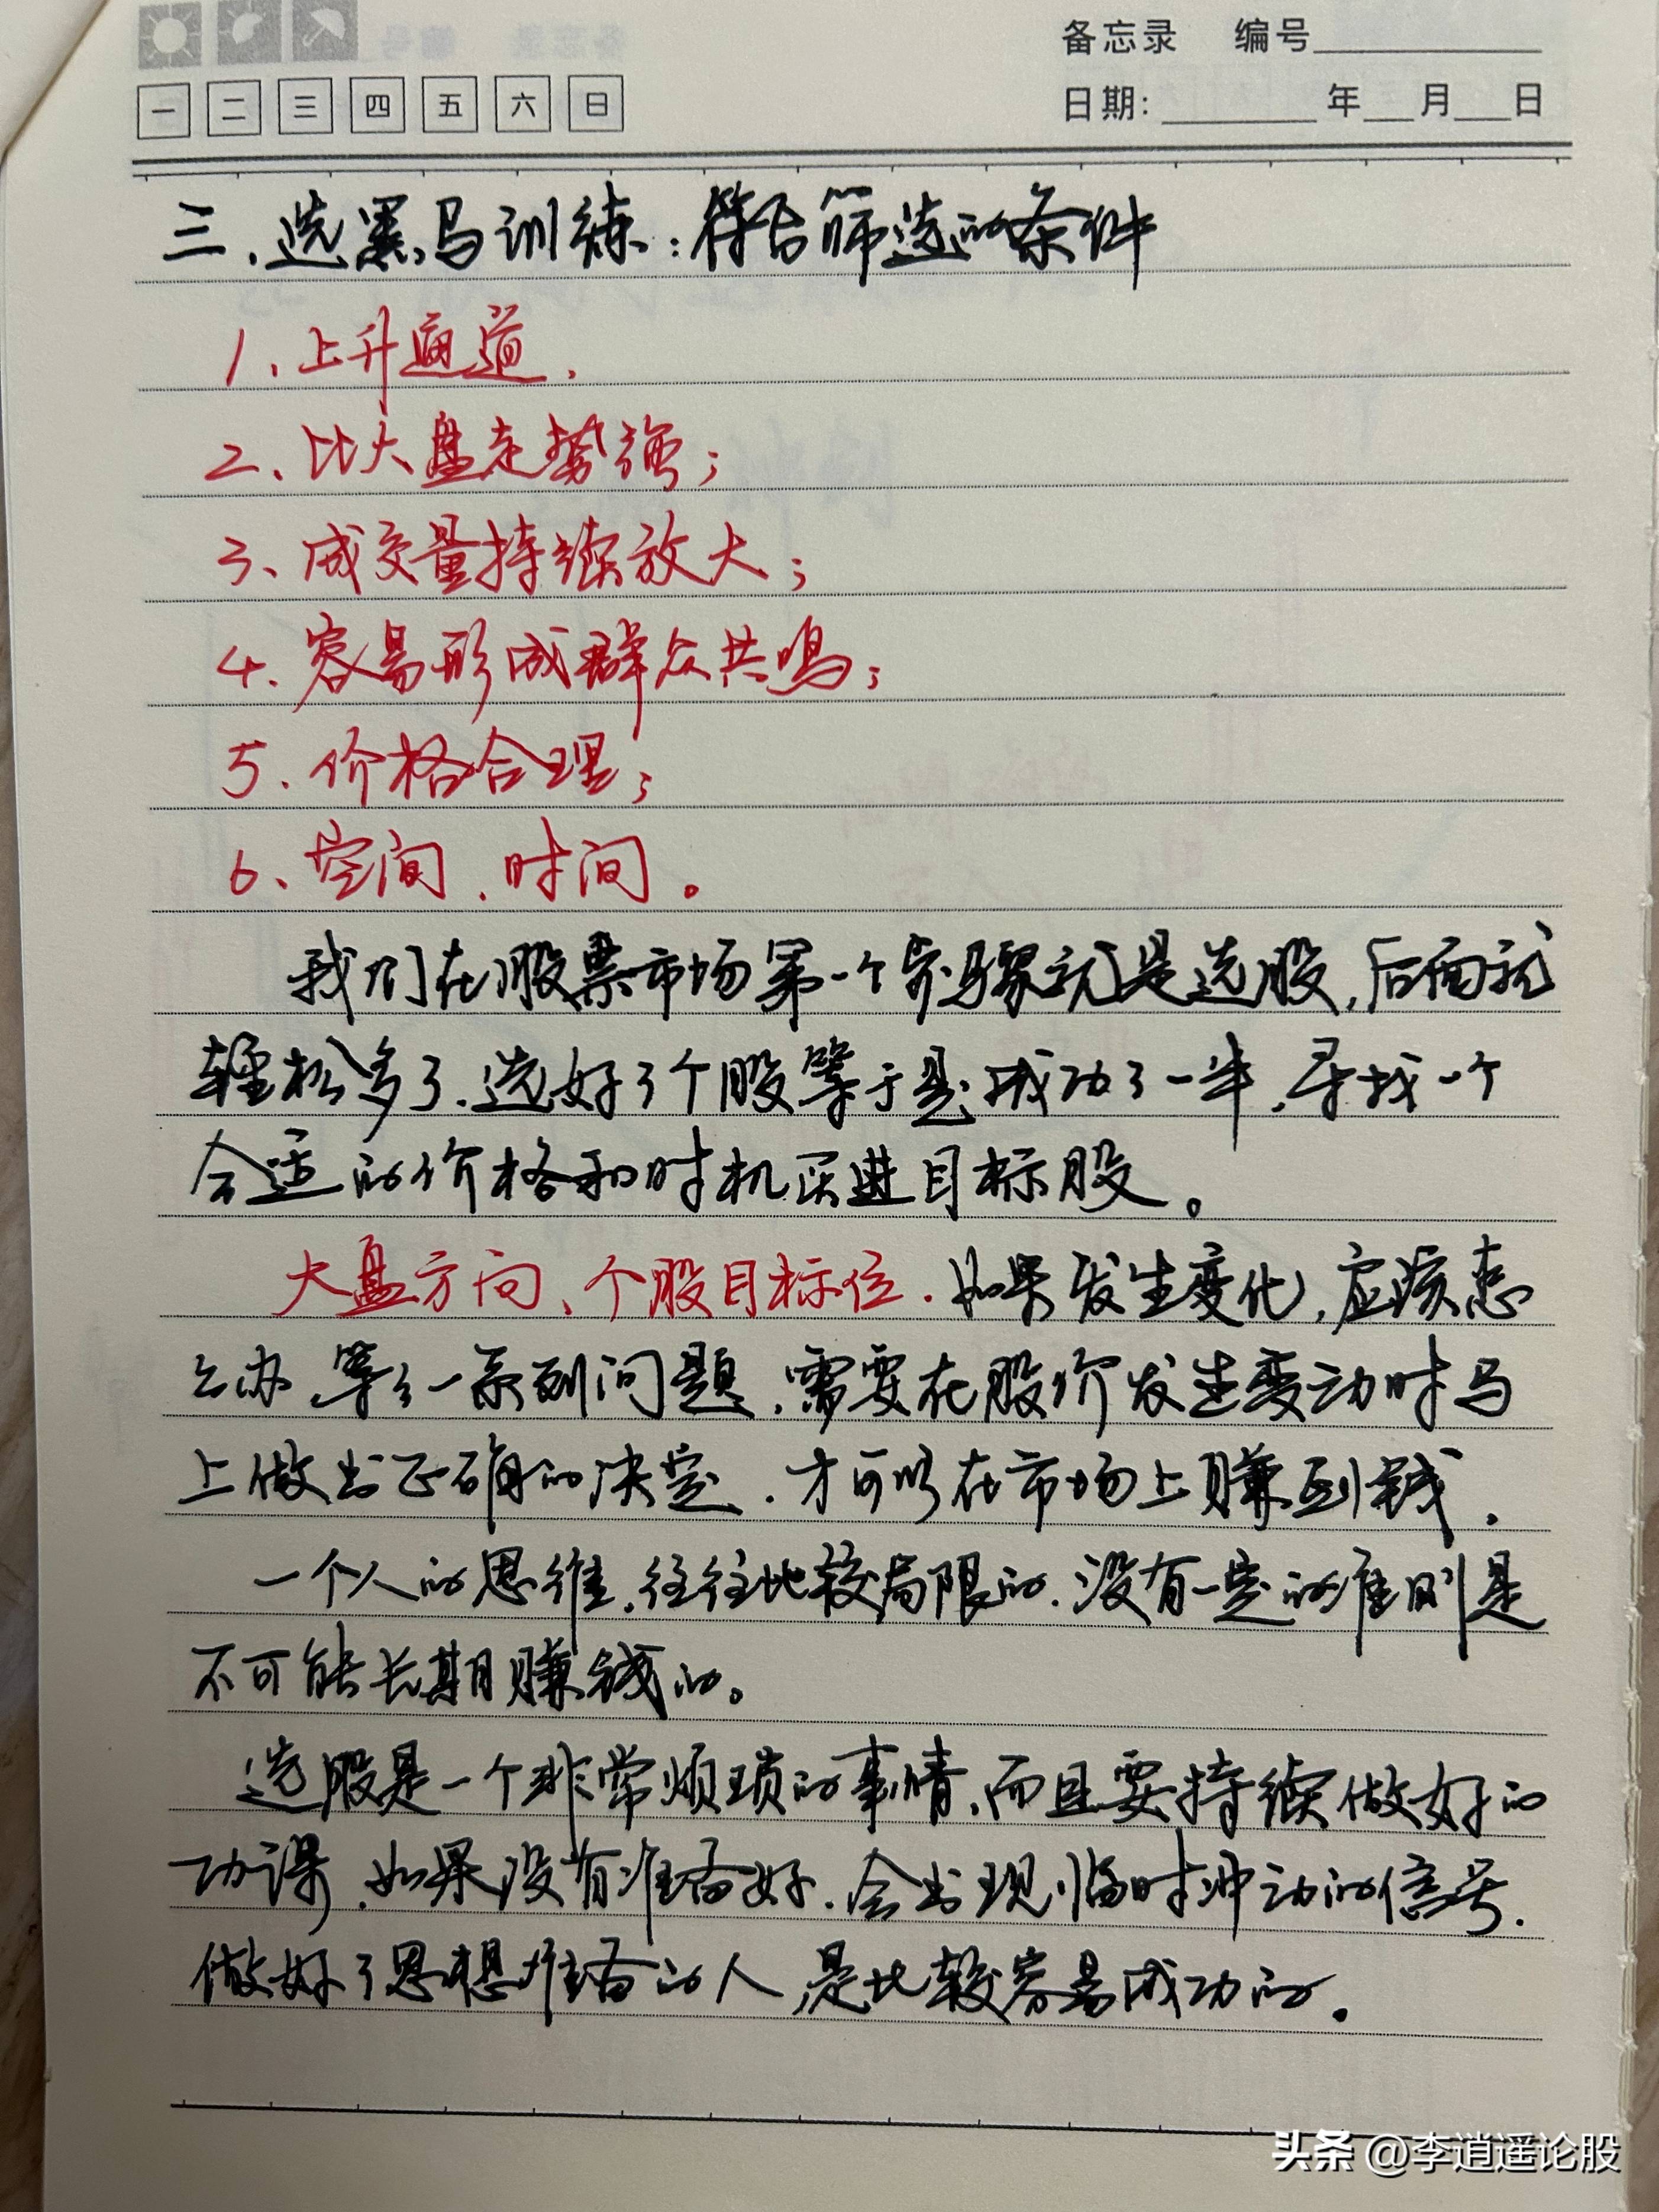 备忘录 编号
一 二 三 四 五 六 日
日期: 年 月 日
三、选黑马训练:符合筛选的条件
1、上升通道.
2、比大盘走势强;
3、成交量持续放大;
4、容易形成群众共鸣;
5、价格合理;
6、空间、时间。
我们在股票市场第一个步骤就是选股,后面就
轻松多了.选好了个股等于是成功了一半,寻找一个
合适的价格和时机买进目标股。
大盘方向、个股目标位.如果发生变化,应该怎
么办,等等一系列问题,需要在股价发生变动时马
上做出正确的决定.才可以在市场上赚到钱.
一个人的思维,往往比较局限的.没有一定的准则是
不可能长期赚钱的。
选股是一个非常烦琐的事情,而且要持续做好的
功课,如果没有准备好.会出现临时冲动的信号.
做好了思想准备的人,是比较容易成功的。
头条 @李逍遥论股